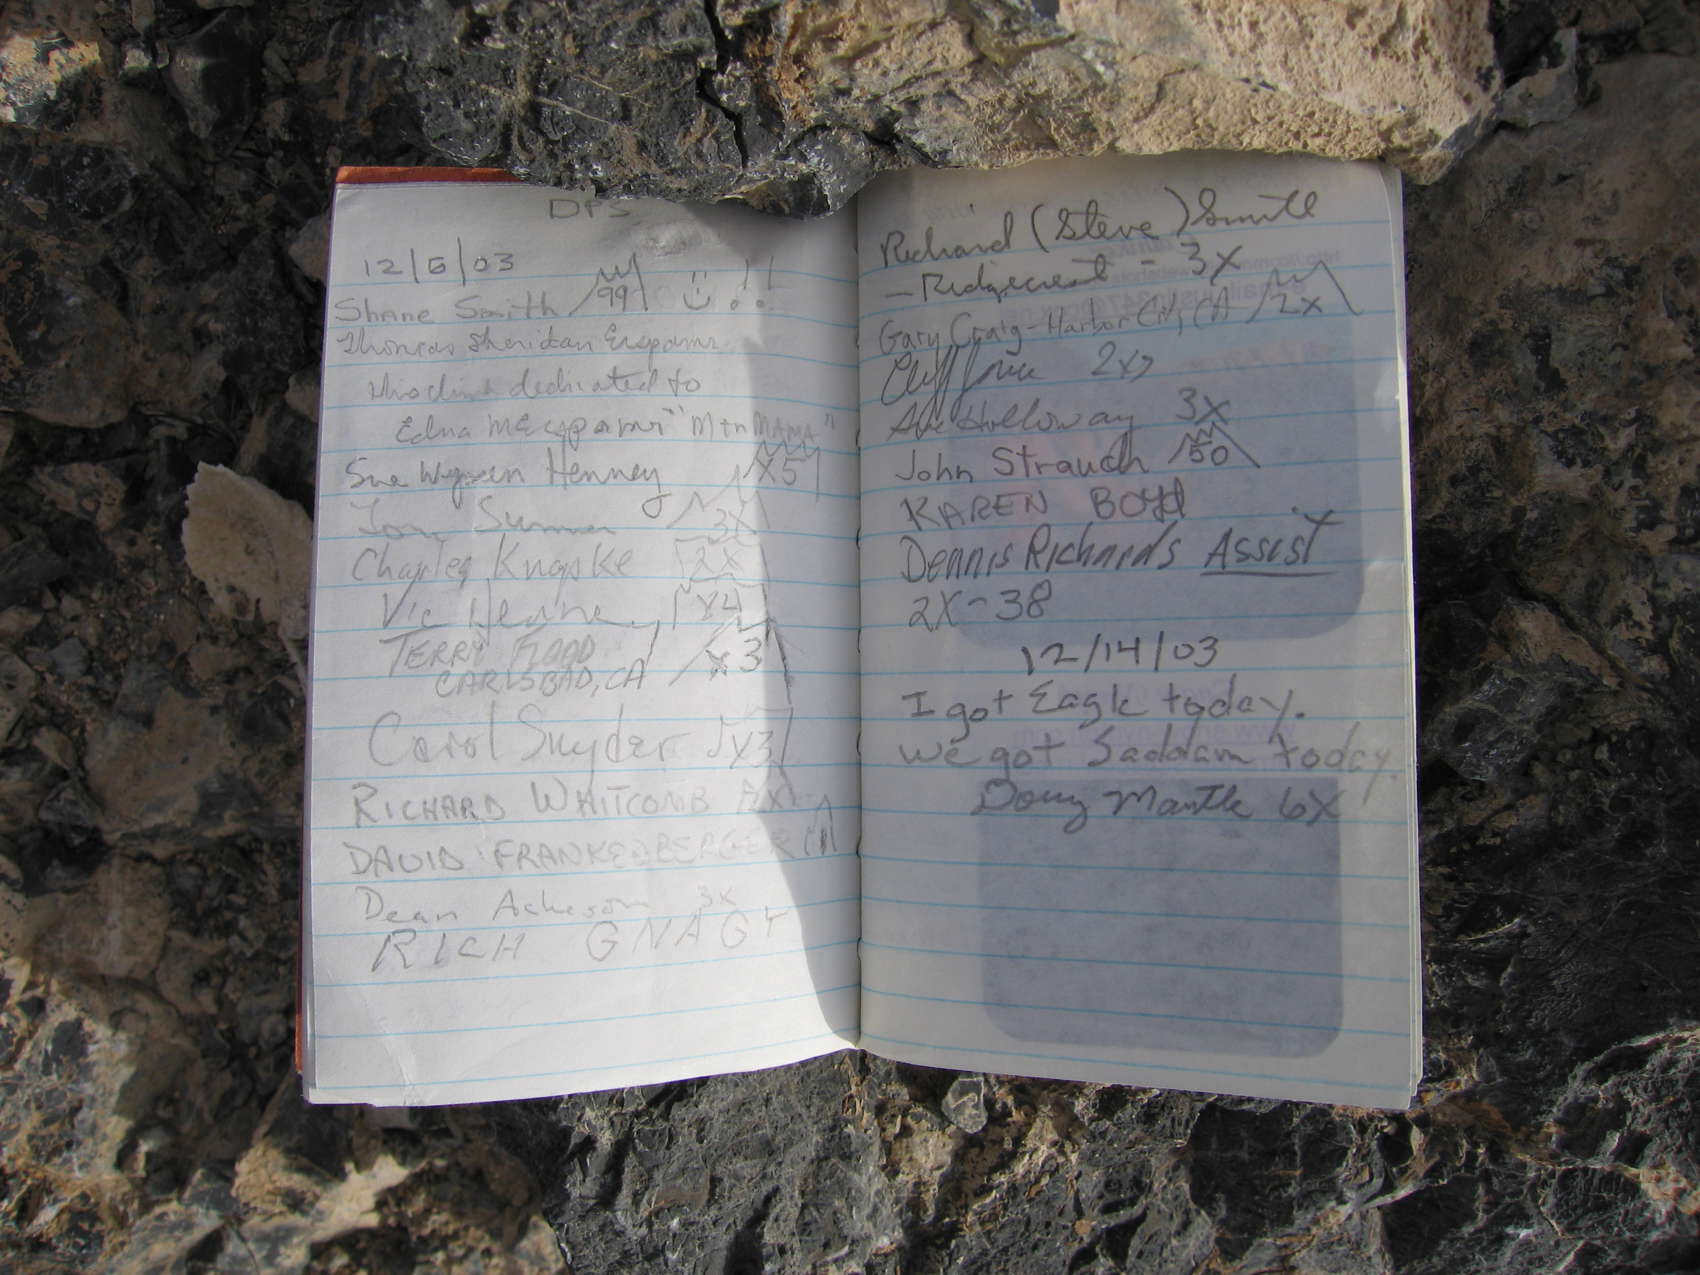 DPS
12/6/03
Shane Smith 99
Thomas Sheridan
this climb dedicated to
Edna "Mtn MAMA"
Sue Wyman Henney X5
Tom Sumner 3X
Charles Knapke 2X
Vic Henney X4
TERRY FLOOD
CARLSBAD, CA X3
Carol Snyder X3
RICHARD WHITCOMB
DAVID FRANKENBERGER
Dean Acheson 3x
RICH GNAGY
Richard (Steve) Smith
- Ridgecrest - 3X
Gary Craig - Harbor City, CA 2x
Cliff 2x
Holloway 3X
John Strauch 50
KAREN BOYD
Dennis Richards Assist
2X-38
12/14/03
I got Eagle today.
We got Saddam today.
Doug Mantle 6X